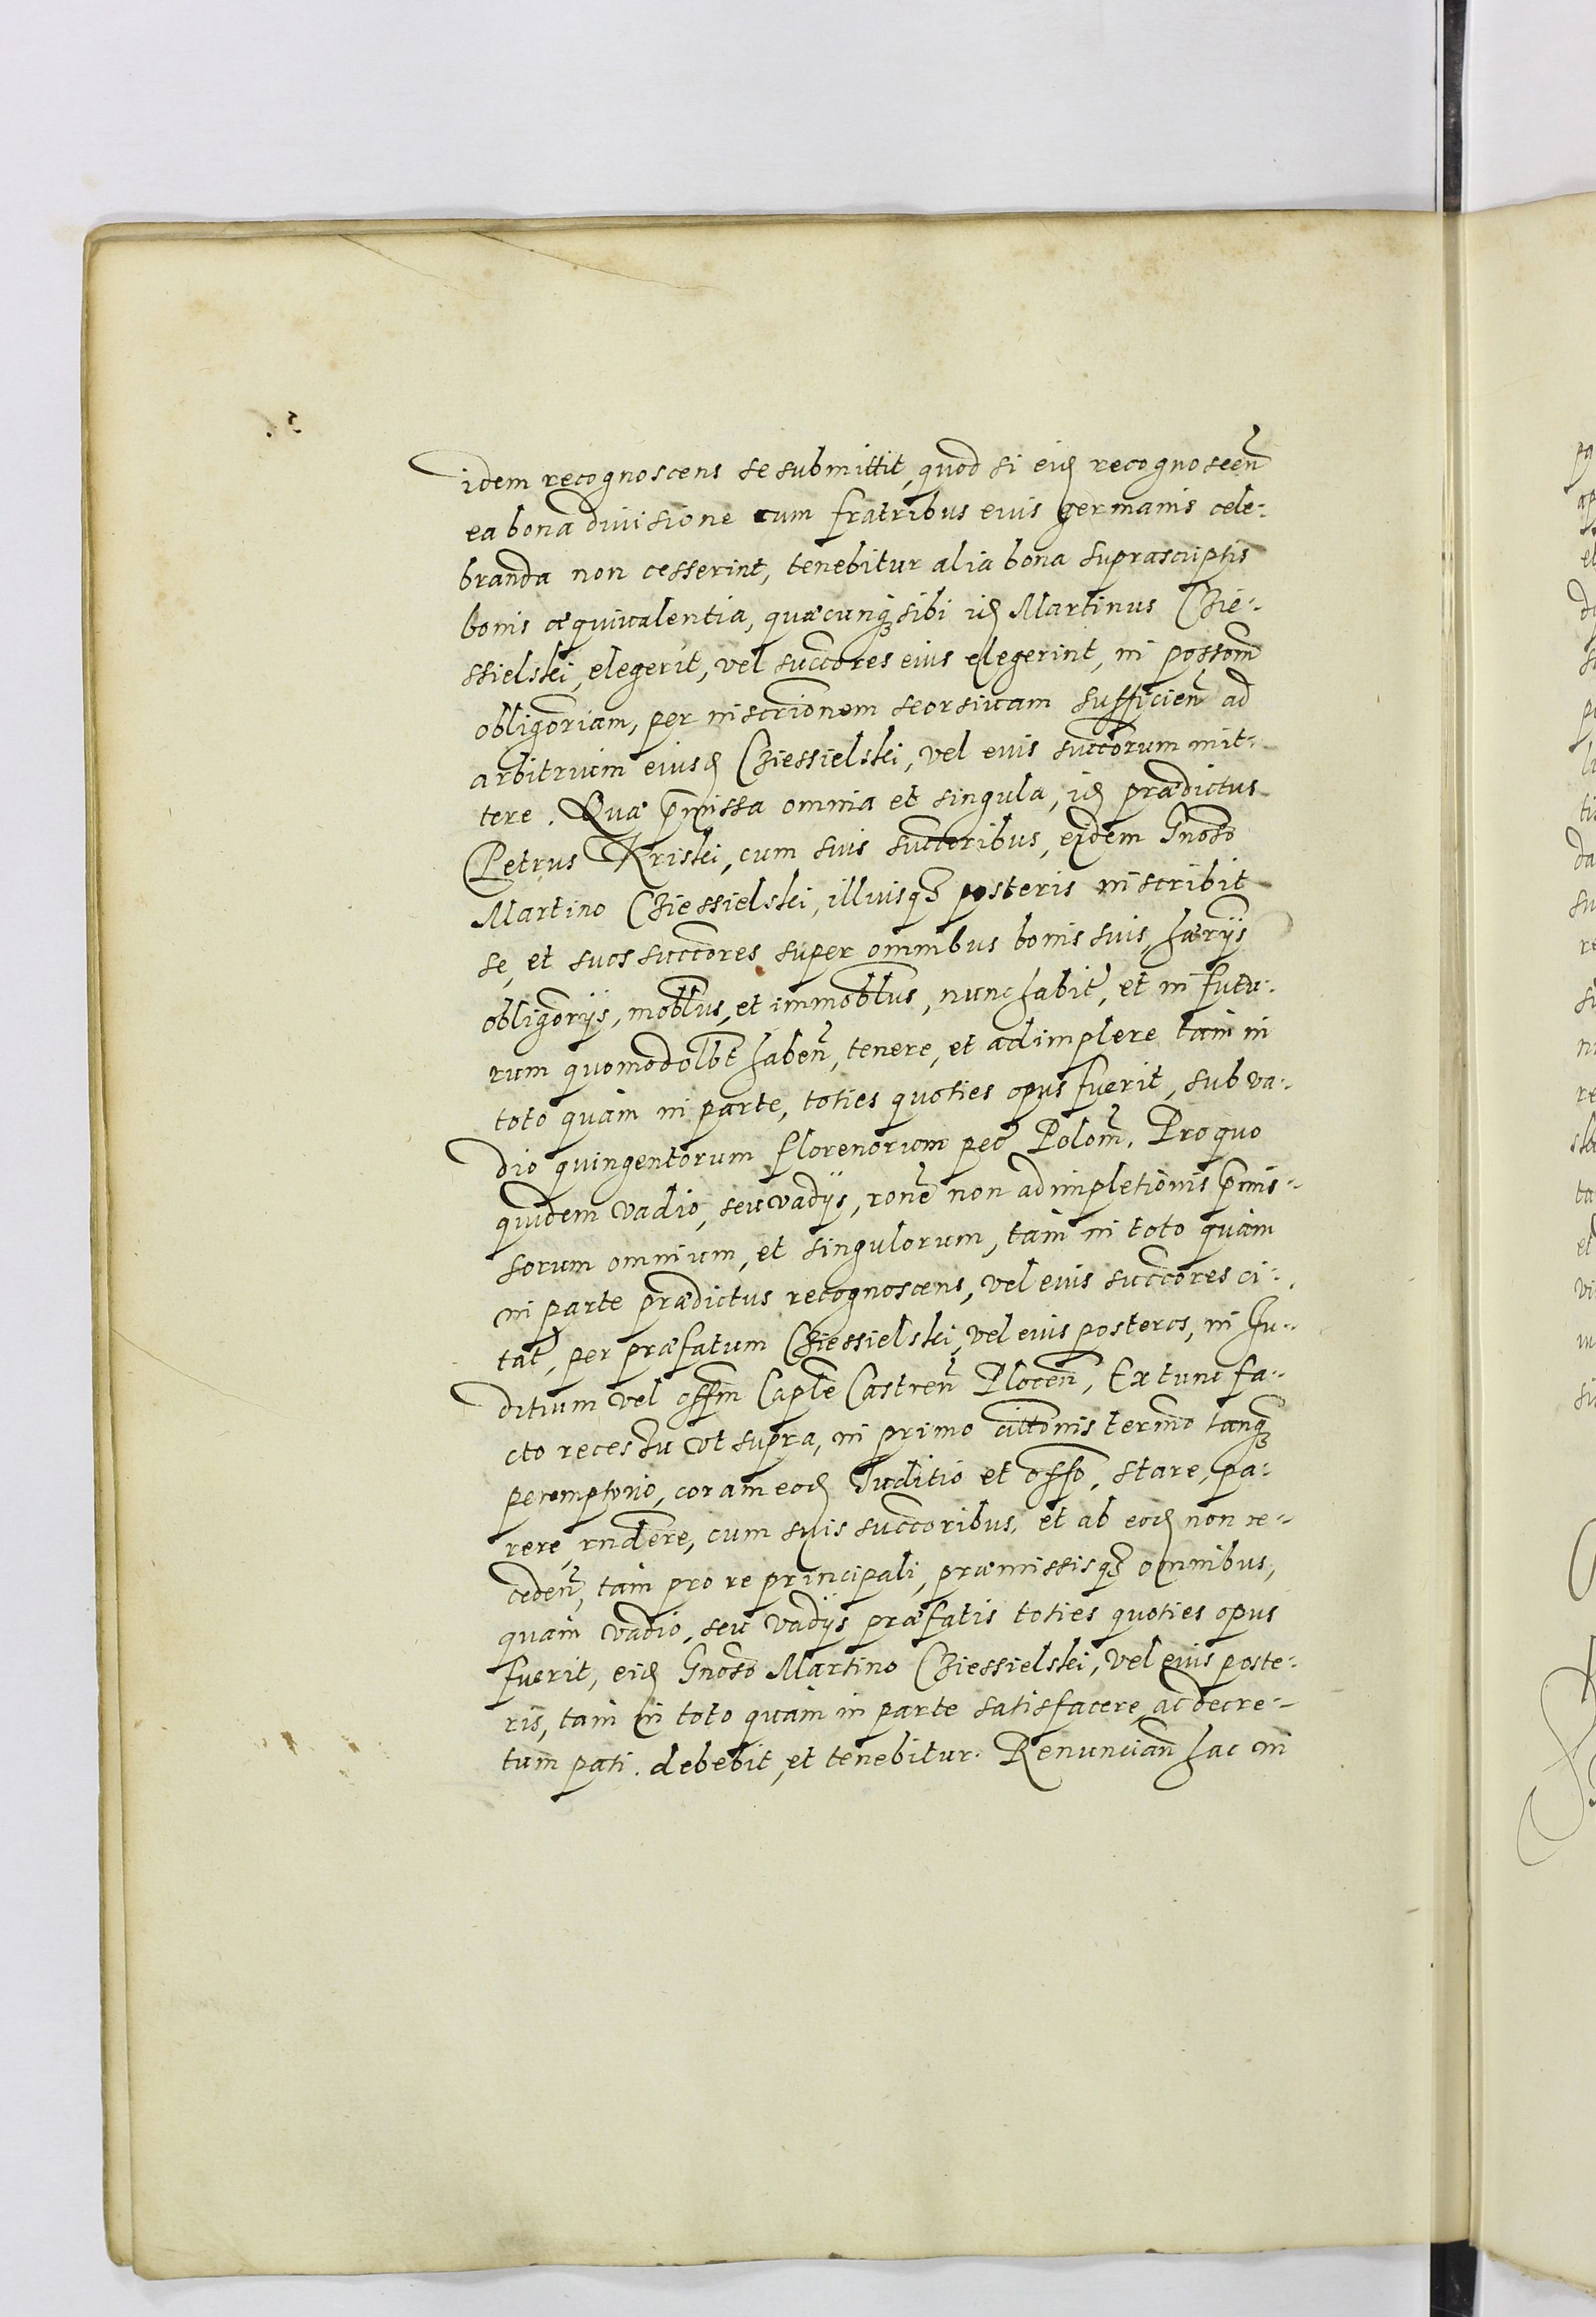 idem recognoscens se submittit, quod si eid recognoscen
ea bona diuisione cum fratribus eius germanis cele-
branda non cesserint, tenebitur alia bona suprascriptis
bonis æquiualentia, quæcunq sibi id Martinus Czie-
ssielski, elegerit, vel succores eius elegerint, in possom
obligoriam, per inscrionem seorsiuam sufficien ad
arbitrium eiusd Cziessielski, vel eius succorum mit-
tere. Quæ pmissa omnia et singula, id prædictus
Petrus Kriski, cum suis succoribus, eidem Gnoso
Martino Cziessielski, illiusq posteris inscribit
se, et suos succores super omnibus bonis suis, hærijs
obligorijs, moblbus, et immoblbus, nunc habit, et in futu-
rum quomodolbt haben, tenere, et adimplere tam in
toto quàm in parte, toties quoties opus fuerit, sub va-
dio quingentorum florenorum pec Polon. Pro quo
quidem vadio, seu vadijs, rone non adimpletionis pmis-
sorum omnium, et singulorum, tam in toto quàm
in parte prædictus recognoscens, vel eius succores ci-
tat, per præfatum Cziessielski, vel eius posteros, in Ju-
ditium vel offm Caple Castren Plocen, Ex tunc fa-
cto recessu vt supra, in primo cittonis termno tanq
peremptorio, coram eod Juditio et offo, stare, pa-
rere, rndere, cum suis succoribus, et ab eod non re-
ceden, tam pro re principali, præmissisq omnibus,
quàm vadio, seu vadijs præfatis toties quoties opus
fuerit, eid Gnoso Martino Cziessielski, vel eius poste-
ris, tam in toto quàm in parte satisfacere, ac decre-
tum pati. debebit, et tenebitur. Renuncian hac in